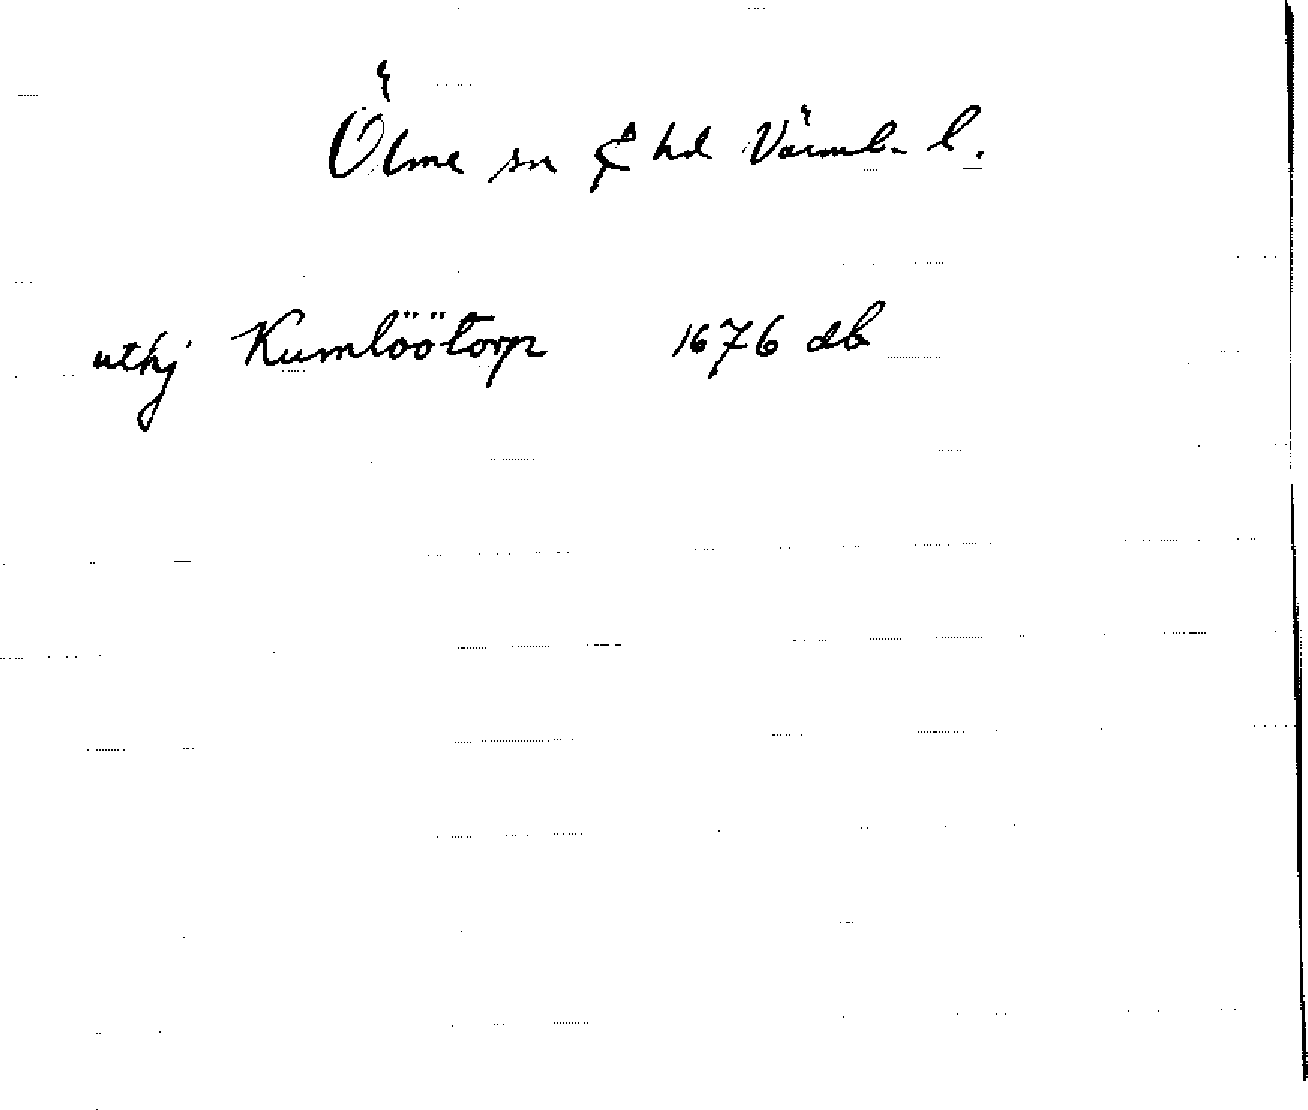 Ölme sn & hd Värml. l.
uthj Kumlöötorp 1676 db